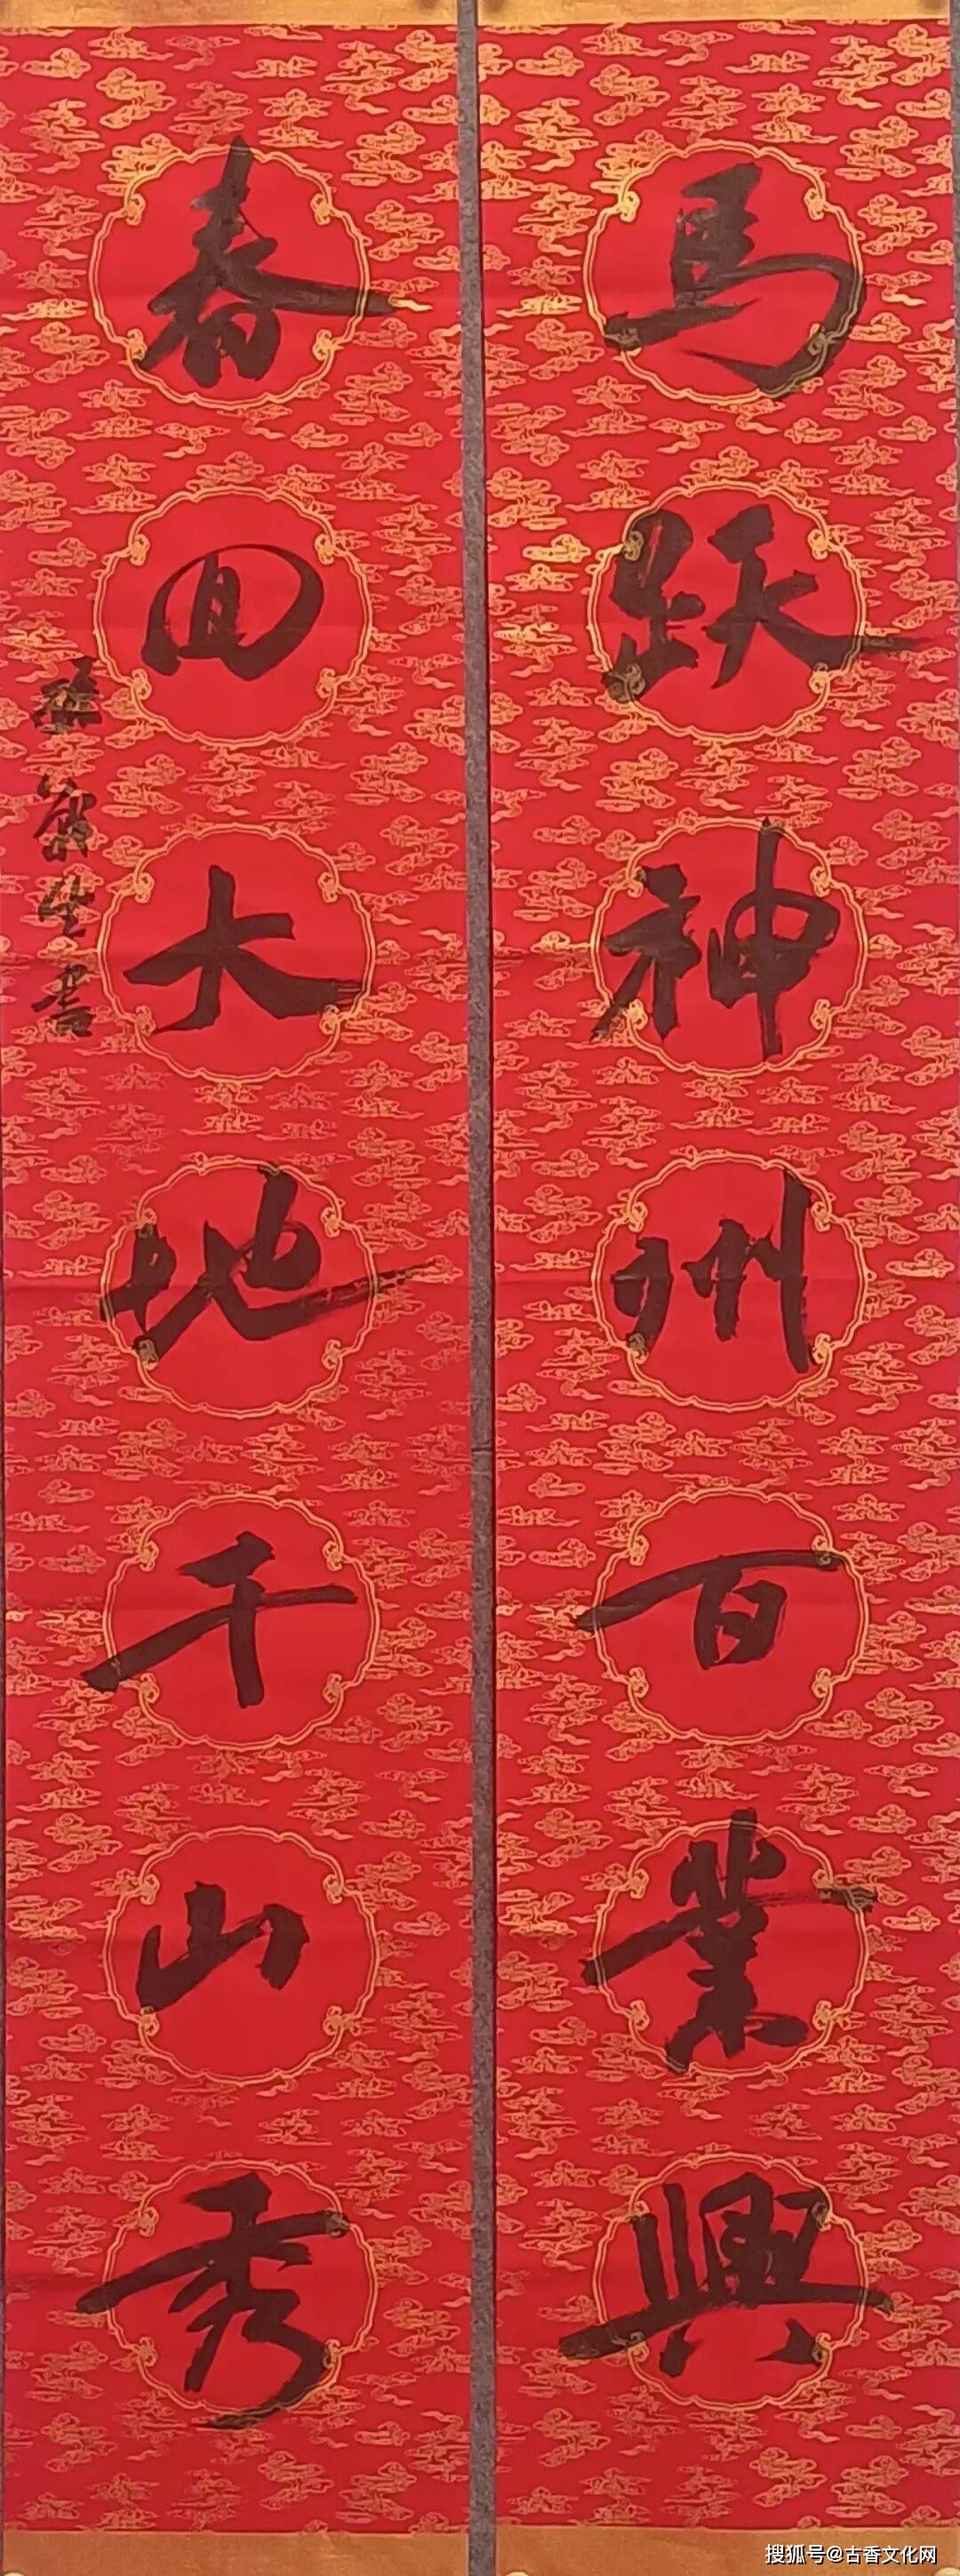 馬跃神州百業興
春回大地千山秀
生書
搜狐号@古香文化网